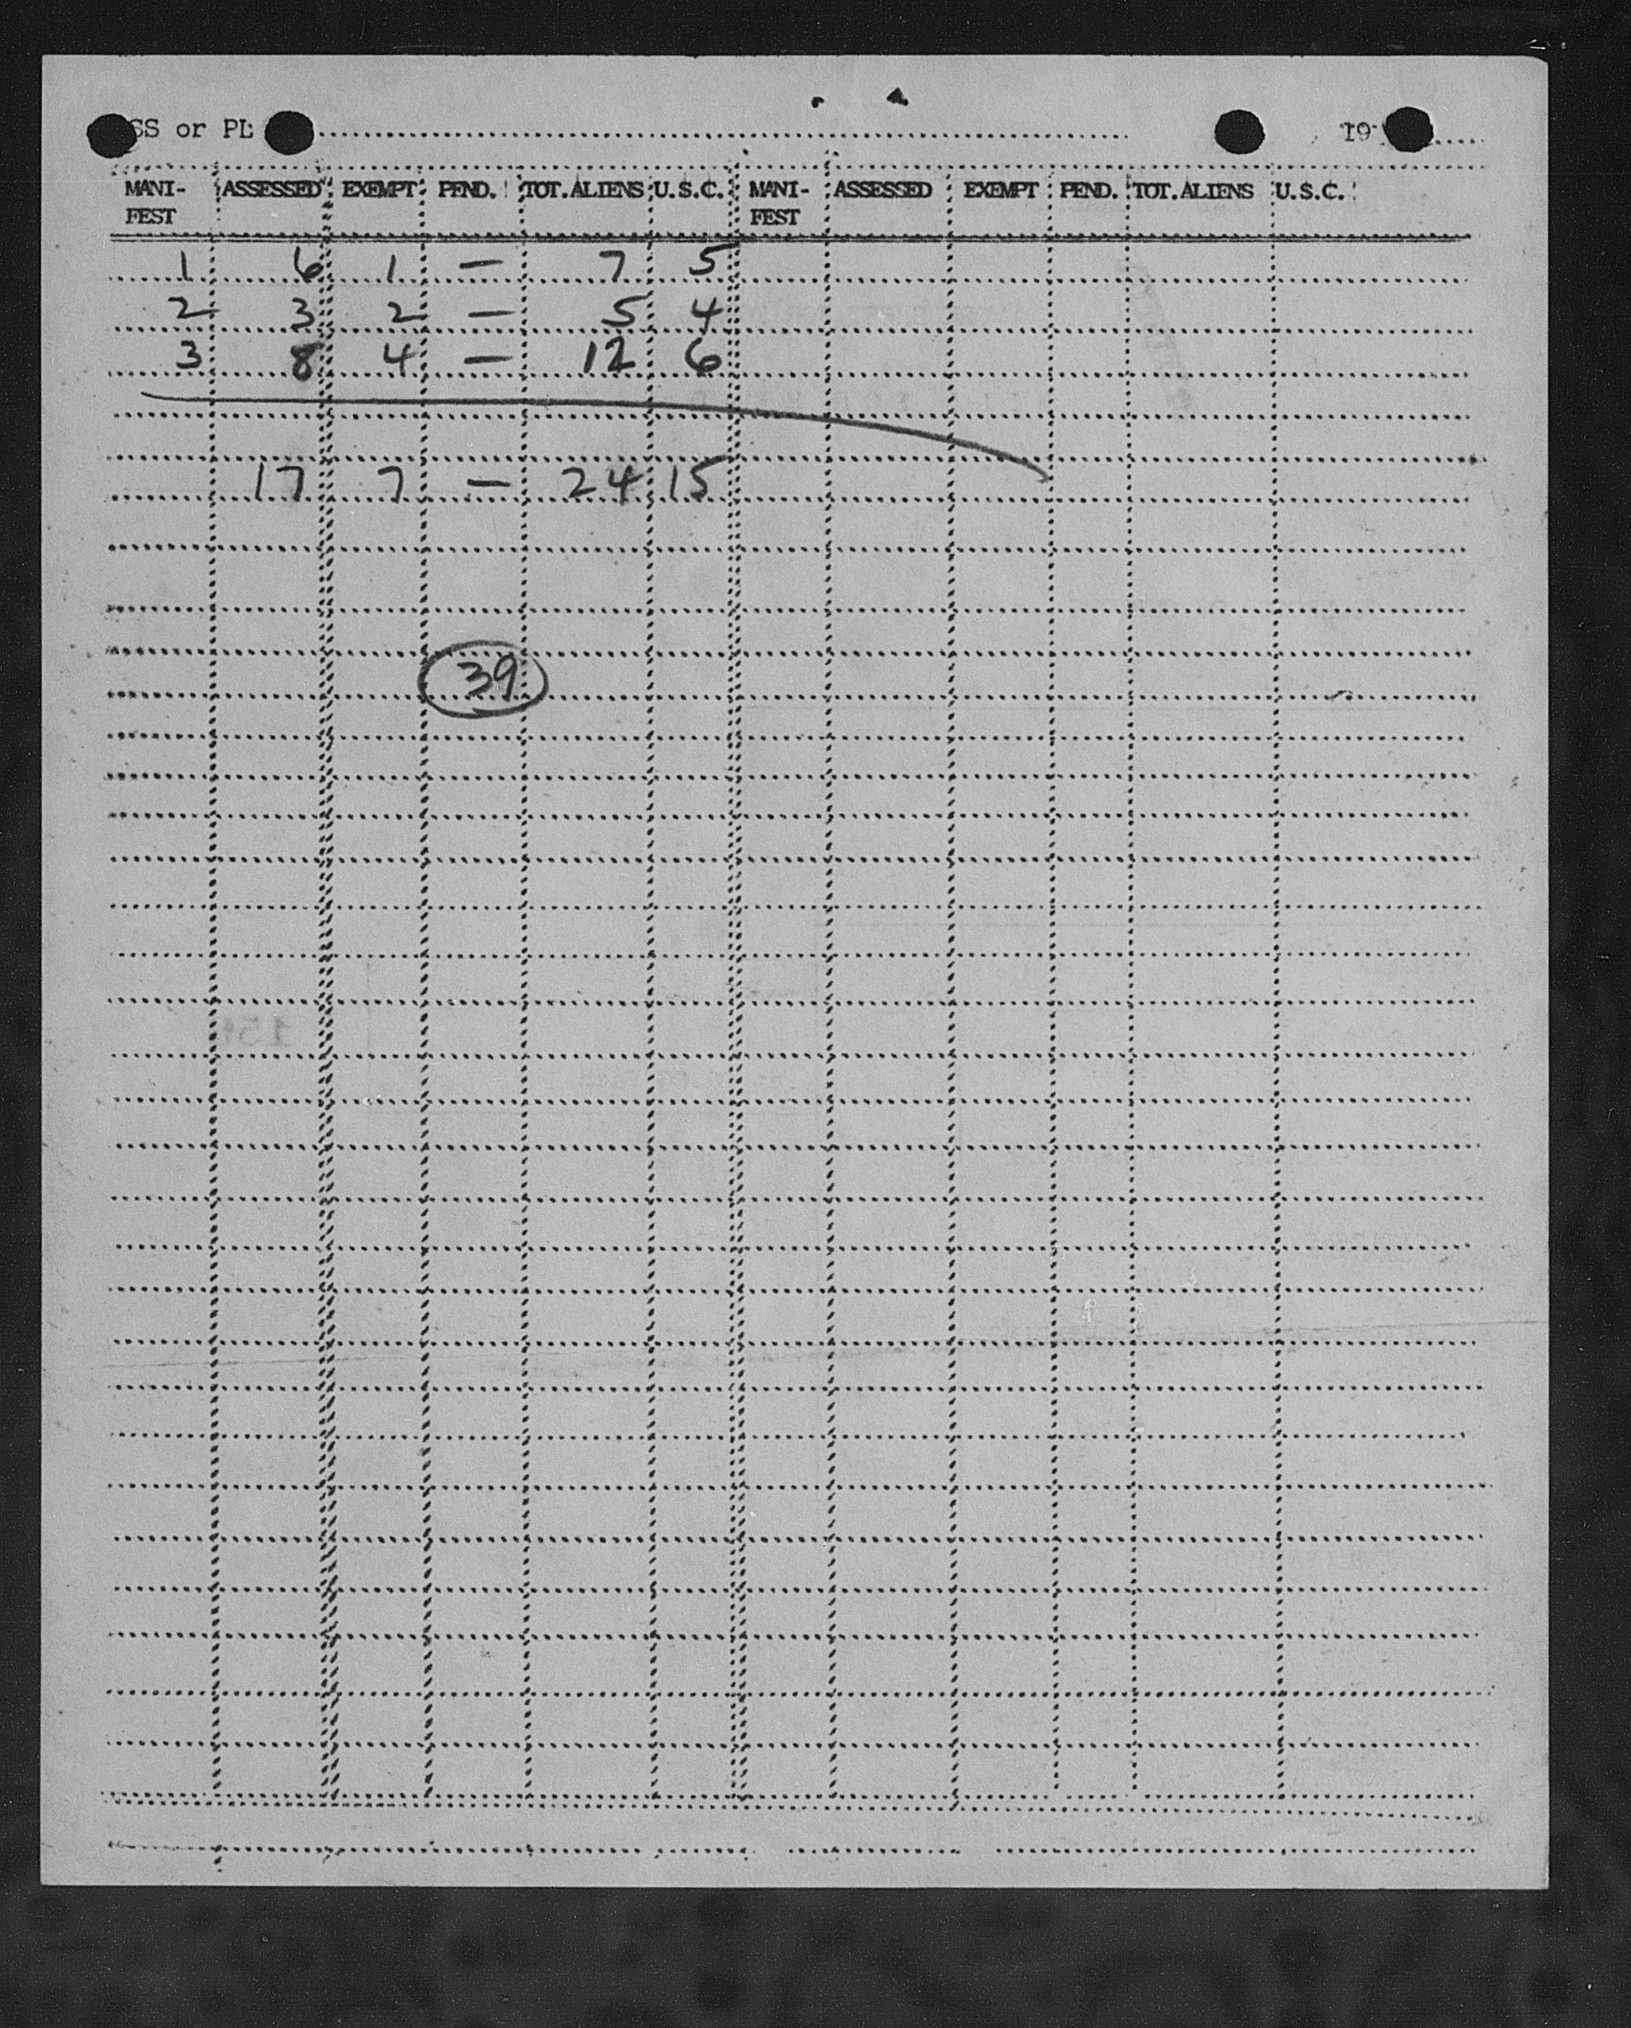 SS or PL 19
MANI- ASSESSED EXEMPT PEND. TOT. ALIENS U.S.C. MANI- ASSESSED EXEMPT PEND. TOT. ALIENS U.S.C.
FEST FEST
1 6 1 — 7 5
2 3 2 — 5 4
3 8 4 — 12 6
17 7 — 24 15
39